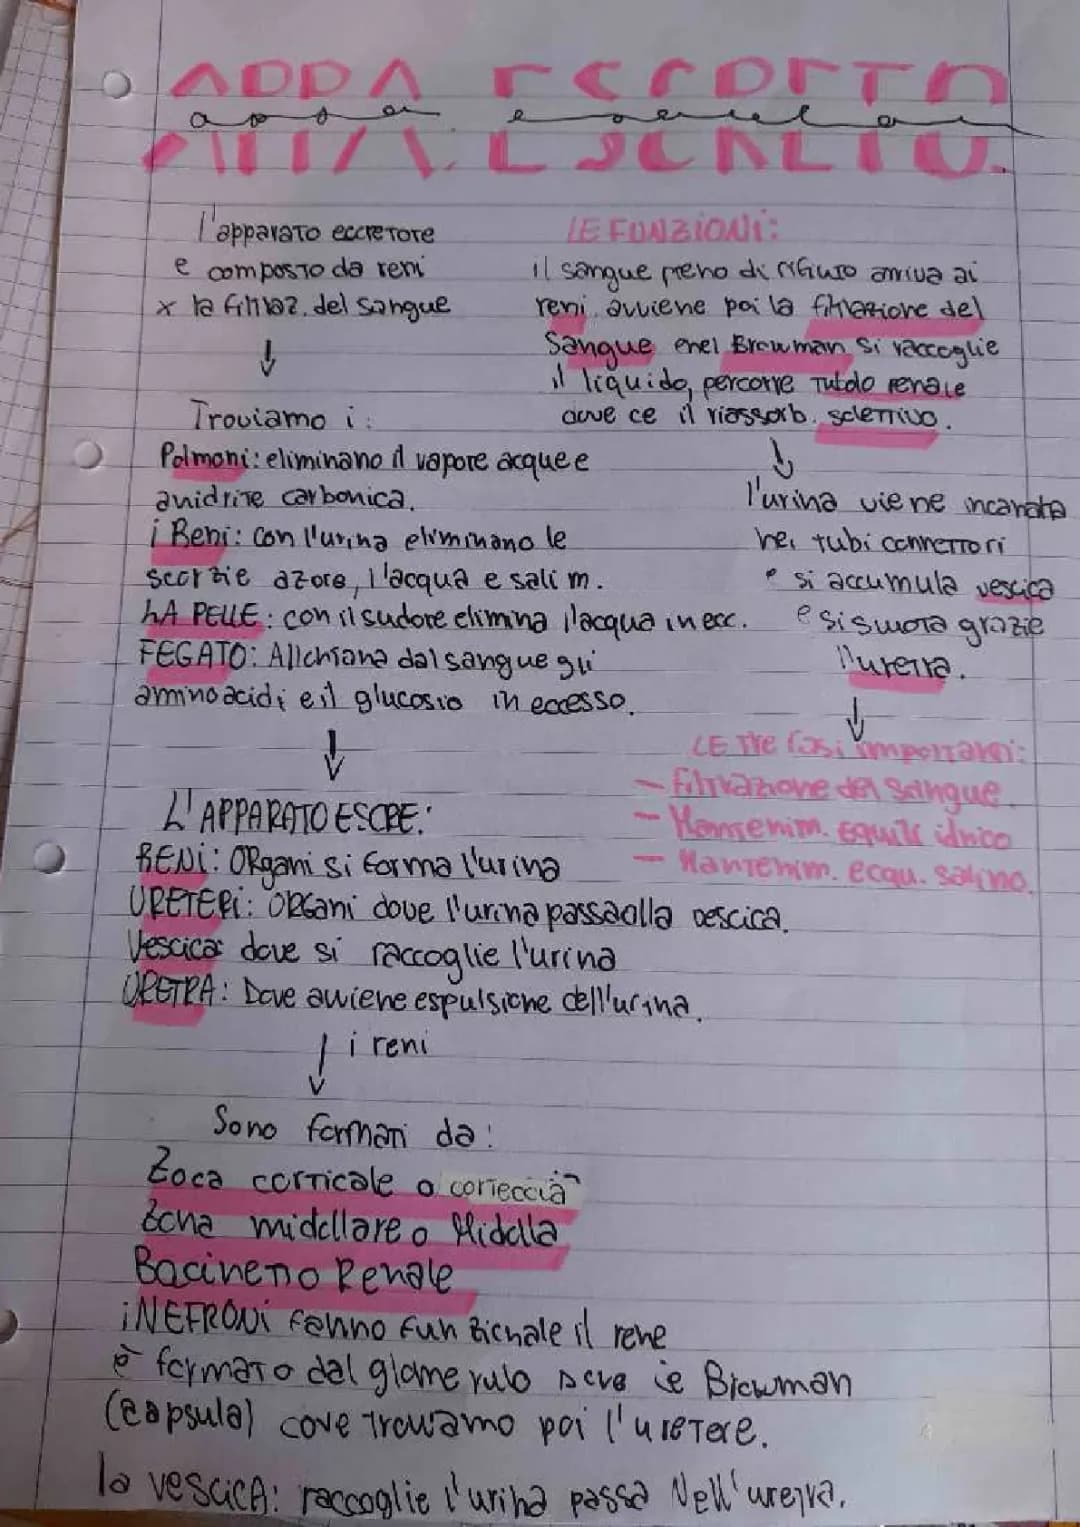 APPA. ESCRETO.
l'apparato eccretore
e composto da reni
x la filtraz. del sangue
Troviamo i:
Polmoni: eliminano il vapore acque e
anidrite carbonica.
i Reni: con l'urina eliminano le
scorzie azore, l'acqua e sali m.
LA PELLE: con il sudore elimina l'acqua in ecc.
FEGATO: Allontana dal sangue gli
aminoacidi e il glucosio in eccesso.
LE FUNZIONI:
il sangue pieno di rifiuto arriva ai
reni avviene poi la filtrazione del
Sangue e nel Browman si raccoglie
il liquido, percorre tutdo renale
dove ce il riassorb. selettivo.
l'urina viene incanata
nei tubi connettori
e si accumula vescica
e si svuota grazie
l'uretra.
LE tre fasi importanti:
- filtrazione del sangue.
- Mantenim. equili idrico
- Mantenim. ecqu. salino.
L'APPARATO ESCRE:
RENI: ORgani si forma l'urina
URETERI: ORGani dove l'urina passa alla vescica.
Vescica: dove si raccoglie l'urina
URETRA: Dove avviene espulsione dell'urina.
i reni
Sono formati da:
Zoca corticale o corteccia
Zona midollare o Midolla
Bacinetto Renale
i NEFRONI fanno funzionale il rene
è formato dal glomerulo Browman
(capsula) dove troviamo poi l'uretere.
la vescica: raccoglie l'urina passa Nell'uretra.